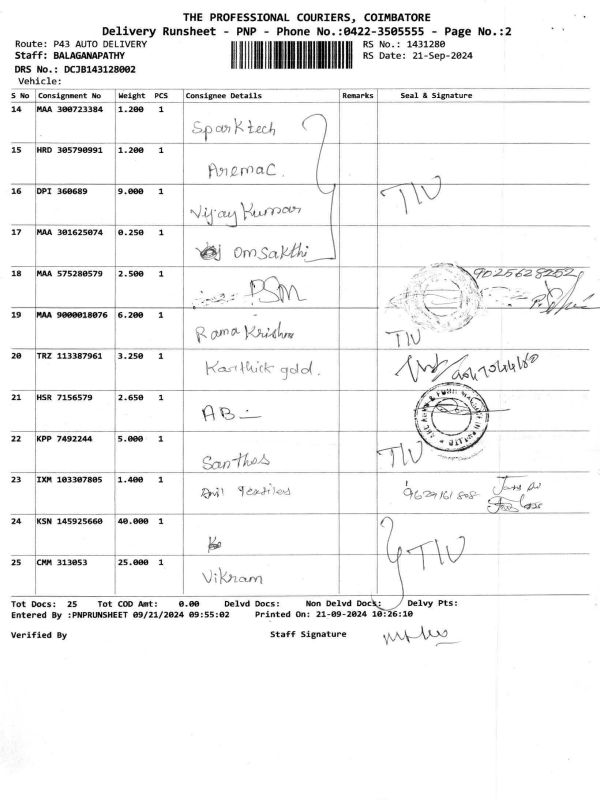 THE PROFESSIONAL COURIERS, COIMBATORE
Delivery Runsheet - PNP - Phone No.:0422-3505555 - Page No.:2
Route: P43 AUTO DELIVERY RS No.: 1431280
Staff: BALAGANAPATHY RS Date: 21-Sep-2024
DRS No.: DCJB143128002
Vehicle:
S No Consignment No Weight PCS Consignee Details Remarks Seal & Signature
14 MAA 300723384 1.200 1
Sparktech
15 HRD 305790991 1.200 1
Aremac.
16 DPI 360689 9.000 1
Vijay Kumar TIV
17 MAA 301625074 0.250 1
Omsakthi
18 MAA 575280579 2.500 1 9025628252
PSM
19 MAA 9000018076 6.200 1
Rama Krishna TIV
20 TRZ 113387961 3.250 1
Karthick gold.
21 HSR 7156579 2.650 1
AB -
22 KPP 7492244 5.000 1
Santhos TIV
23 IXM 103307805 1.400 1
Anil Textiles 9629161808
24 KSN 145925660 40.000 1
TIV
25 CMM 313053 25.000 1
Vikram
Tot Docs: 25 Tot COD Amt: 0.00 Delvd Docs: Non Delvd Docs: Delvy Pts:
Entered By :PNPRUNSHEET 09/21/2024 09:55:02 Printed On: 21-09-2024 10:26:10
Verified By Staff Signature